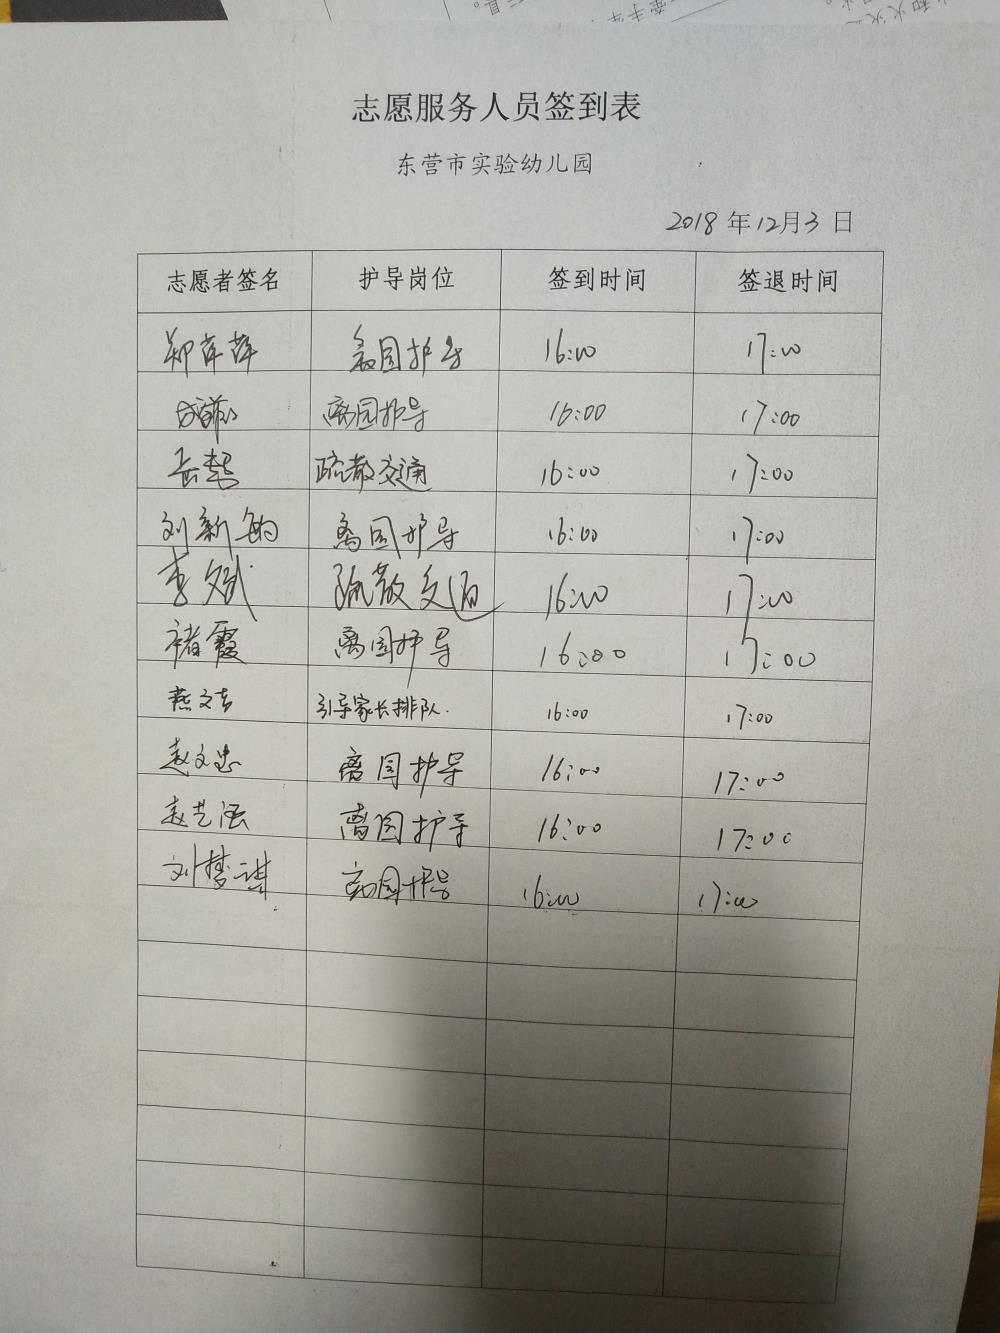 志愿服务人员签到表
东营市实验幼儿园
2018年12月3日
志愿者签名 护导岗位 签到时间 签退时间
郑萍萍 离园护导 16:00 17:00
离园护导 16:00 17:00
疏散交通 16:00 17:00
刘新 离园护导 16:00 17:00
李斌 疏散交通 16:00 17:00
褚霞 离园护导 16:00 17:00
燕文 引导家长排队. 16:00 17:00
赵文忠 离园护导 16:00 17:00
赵艺涵 离园护导 16:00 17:00
刘梦琪 离园护导 16:00 17:00